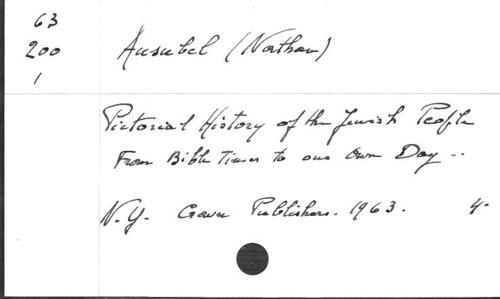 63
200
1
Ausubel (Nathan)
Pictorial History of the Jewish People
From Bible Times to our Own Day --
N.Y. Crown Publishers. 1963. 4.